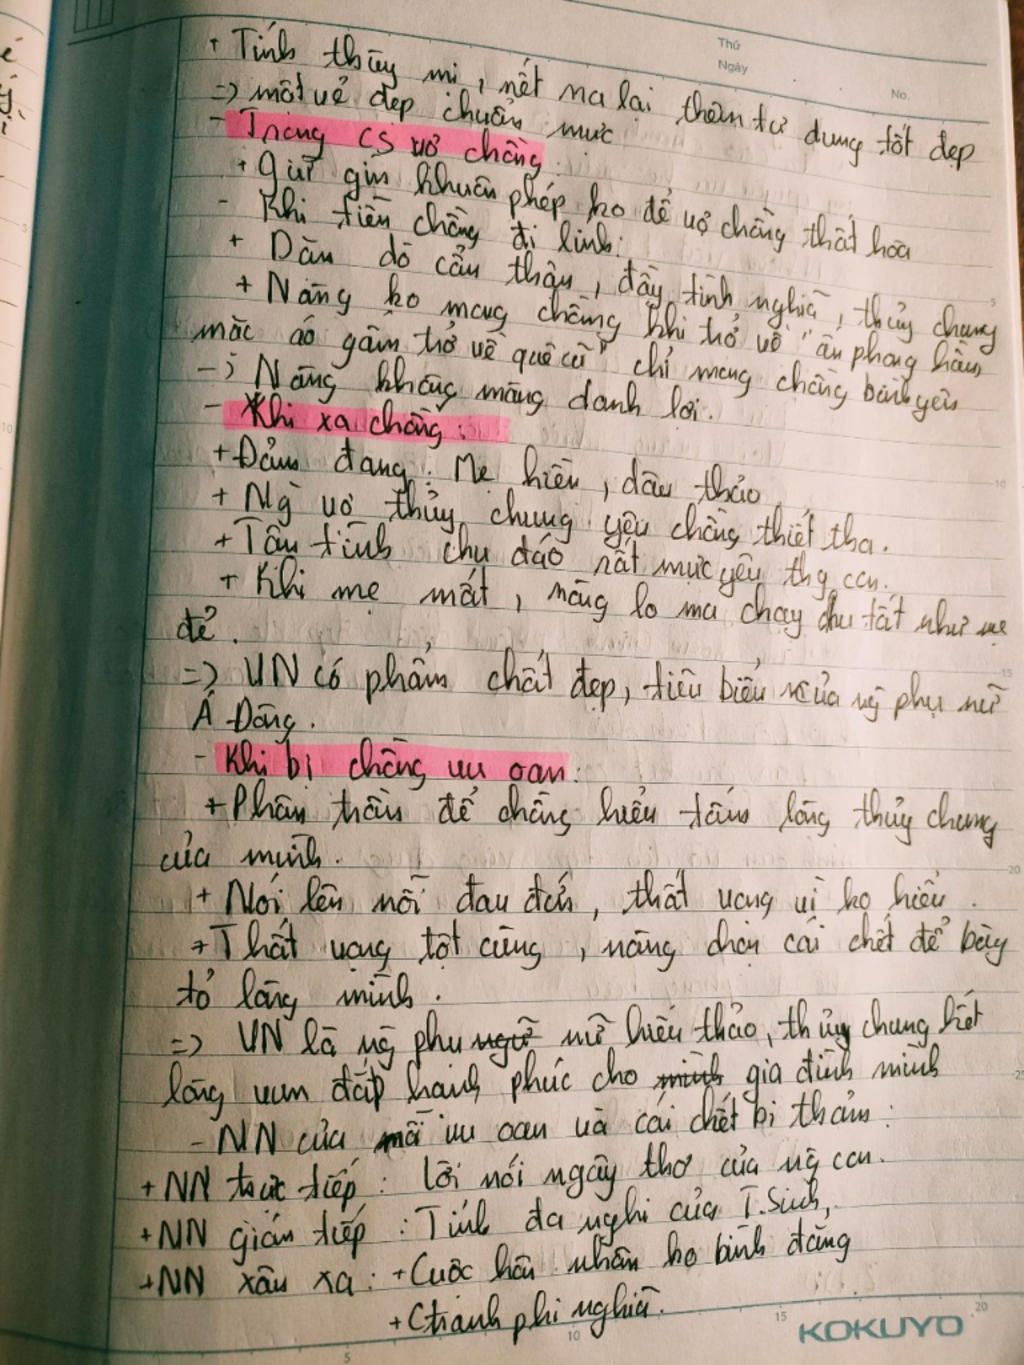 Thứ
Ngày
No.
+ Tính thùy mị, nết na lại thêm tư dung tốt đẹp
=> một vẻ đẹp chuẩn mực
- Trong CS vợ chồng:
+ Giữ gìn khuôn phép ko để vợ chồng thất hòa
- Khi tiễn chồng đi lính:
+ Dặn dò cẩn thận, đầy tình nghĩa, thủy chung
+ Nàng ko mong chồng khi trở về "ấn phong hầu,
mặc áo gấm trở về quê cũ" chỉ mong chồng bình yên
-> Nàng không màng danh lợi.
- Khi xa chồng:
+ Đảm đang: Mẹ hiền, dâu thảo
+ Ng vợ thủy chung yêu chồng thiết tha.
+ Tận tình chu đáo rất mực yêu thg con.
+ Khi mẹ mất, nàng lo ma chay chu tất như mẹ
đẻ.
=> VN có phẩm chất đẹp, tiêu biểu của ng phụ nữ
Á Đông.
- Khi bị chồng vu oan:
+ Phân trần để chồng hiểu tấm lòng thủy chung
của mình.
+ Nói lên nỗi đau đớn, thất vọng vì ko hiểu.
+ Thất vọng tột cùng, nàng chọn cái chết để bày
tỏ lòng mình.
=> VN là ng phụ ngữ nữ hiếu thảo, thủy chung hết
lòng vun đắp hạnh phúc cho mình gia đình mình
- NN của nỗi vu oan và cái chết bi thảm:
+ NN trực tiếp: lời nói ngây thơ của ng con.
+ NN gián tiếp: Tính đa nghi của T.Sinh,
+ NN xâu xa: + Cuộc hôn nhân ko bình đẳng
+ Ctranh phi nghĩa.
5 10 15 20
KOKUYO